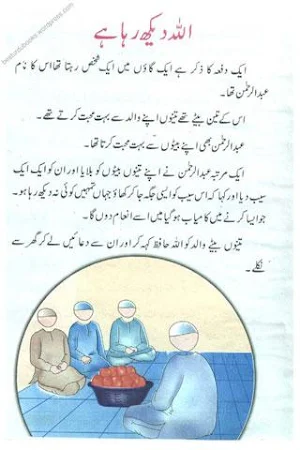 اللہ دیکھ رہا ہے
ایک دفعہ کا ذکر ہے ایک گاؤں میں ایک شخص رہتا تھا اس کا نام
عبدالرحمٰن تھا۔
اس کے تین بیٹے تھے تینوں اپنے والد سے بہت محبت کرتے تھے۔
عبدالرحمٰن بھی اپنے بیٹوں سے بہت محبت کرتا تھا۔
ایک مرتبہ عبدالرحمٰن نے اپنے تینوں بیٹوں کو بلایا اور ان کو ایک ایک
سیب دیا اور کہا کہ اس سیب کو ایسی جگہ جا کر کھاؤ جہاں تمہیں کوئی نہ دیکھ رہا ہو۔
جو ایسا کرنے میں کامیاب ہو گیا میں اسے انعام دوں گا۔
تینوں بیٹے والد کو اللہ حافظ کہہ کر اور ان سے دعائیں لے کر گھر سے
نکلے۔